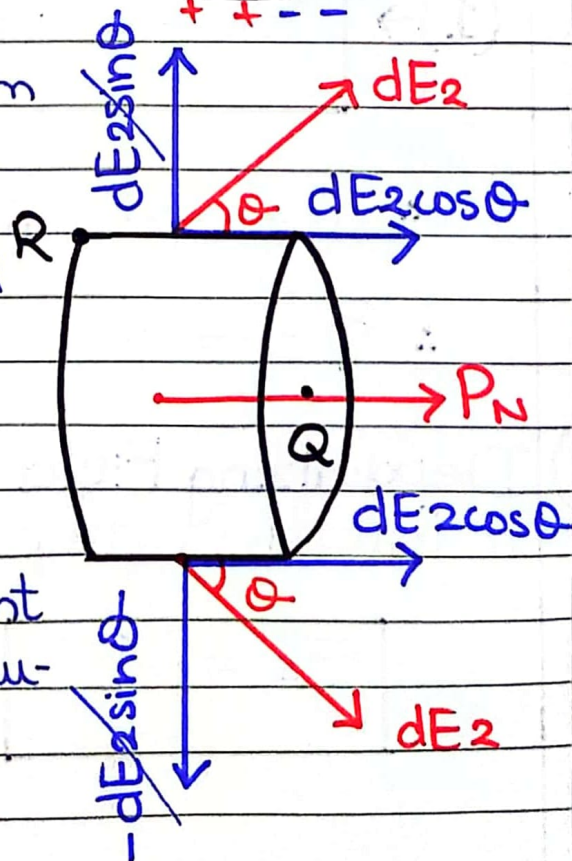 + + - -
n
dE2sinθ
dE2
θ
dE2cosθ
R
∴
PN
Q
dE2cosθ
θ
ot
u-
-dE2sinθ
dE2